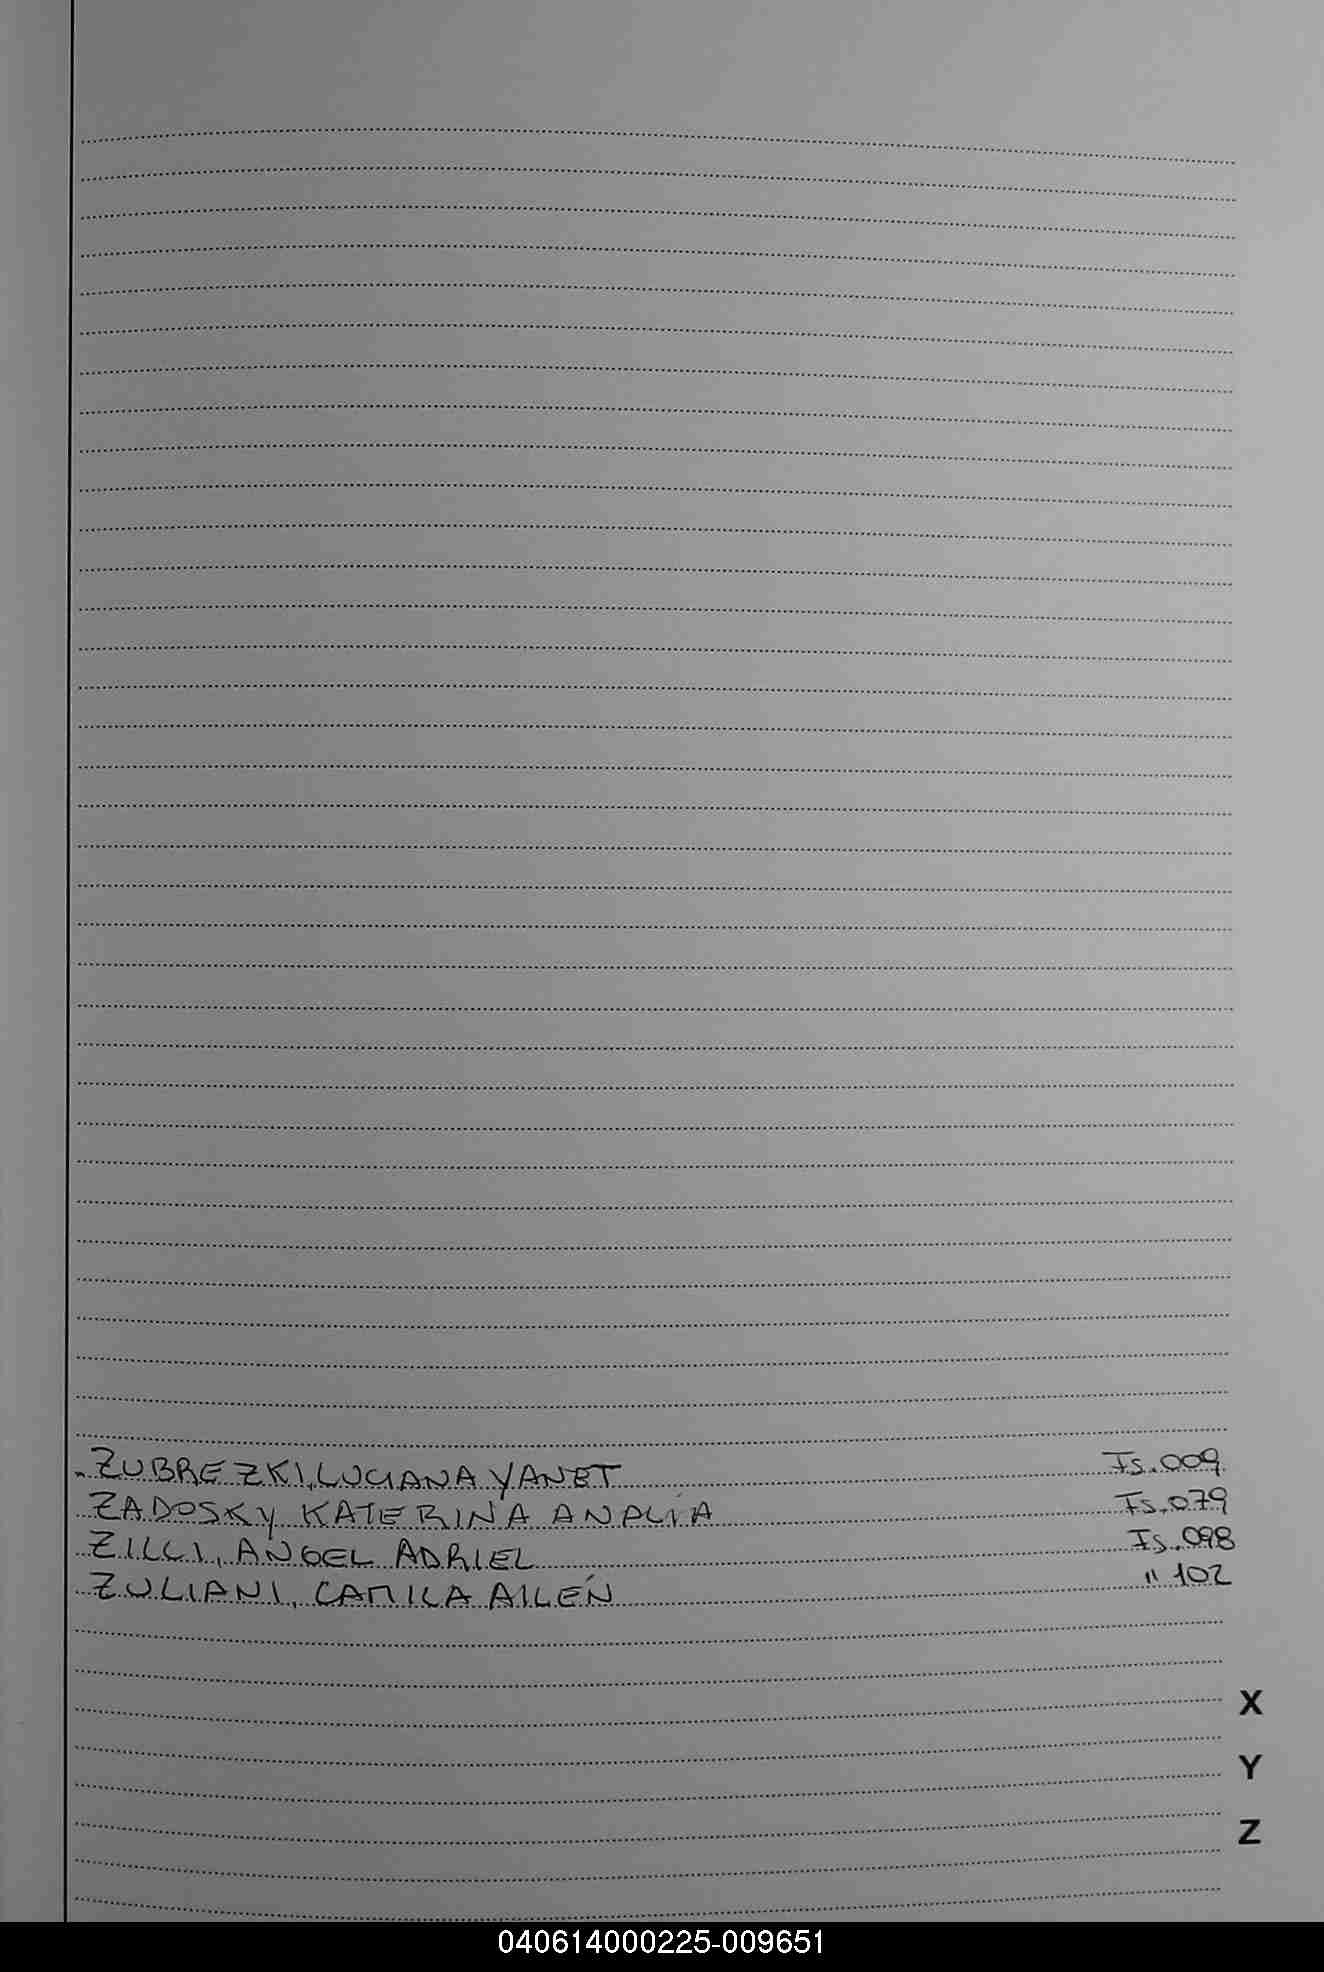 ZUBREZKI, LUCIANA YANET Fs. 009
ZADOSKY KATERINA ANALÍA Fs. 079
ZILLI, ANGEL ADRIEL Fs. 098
ZULIANI, CAMILA AILÉN " 102
X
Y
Z
040614000225-009651